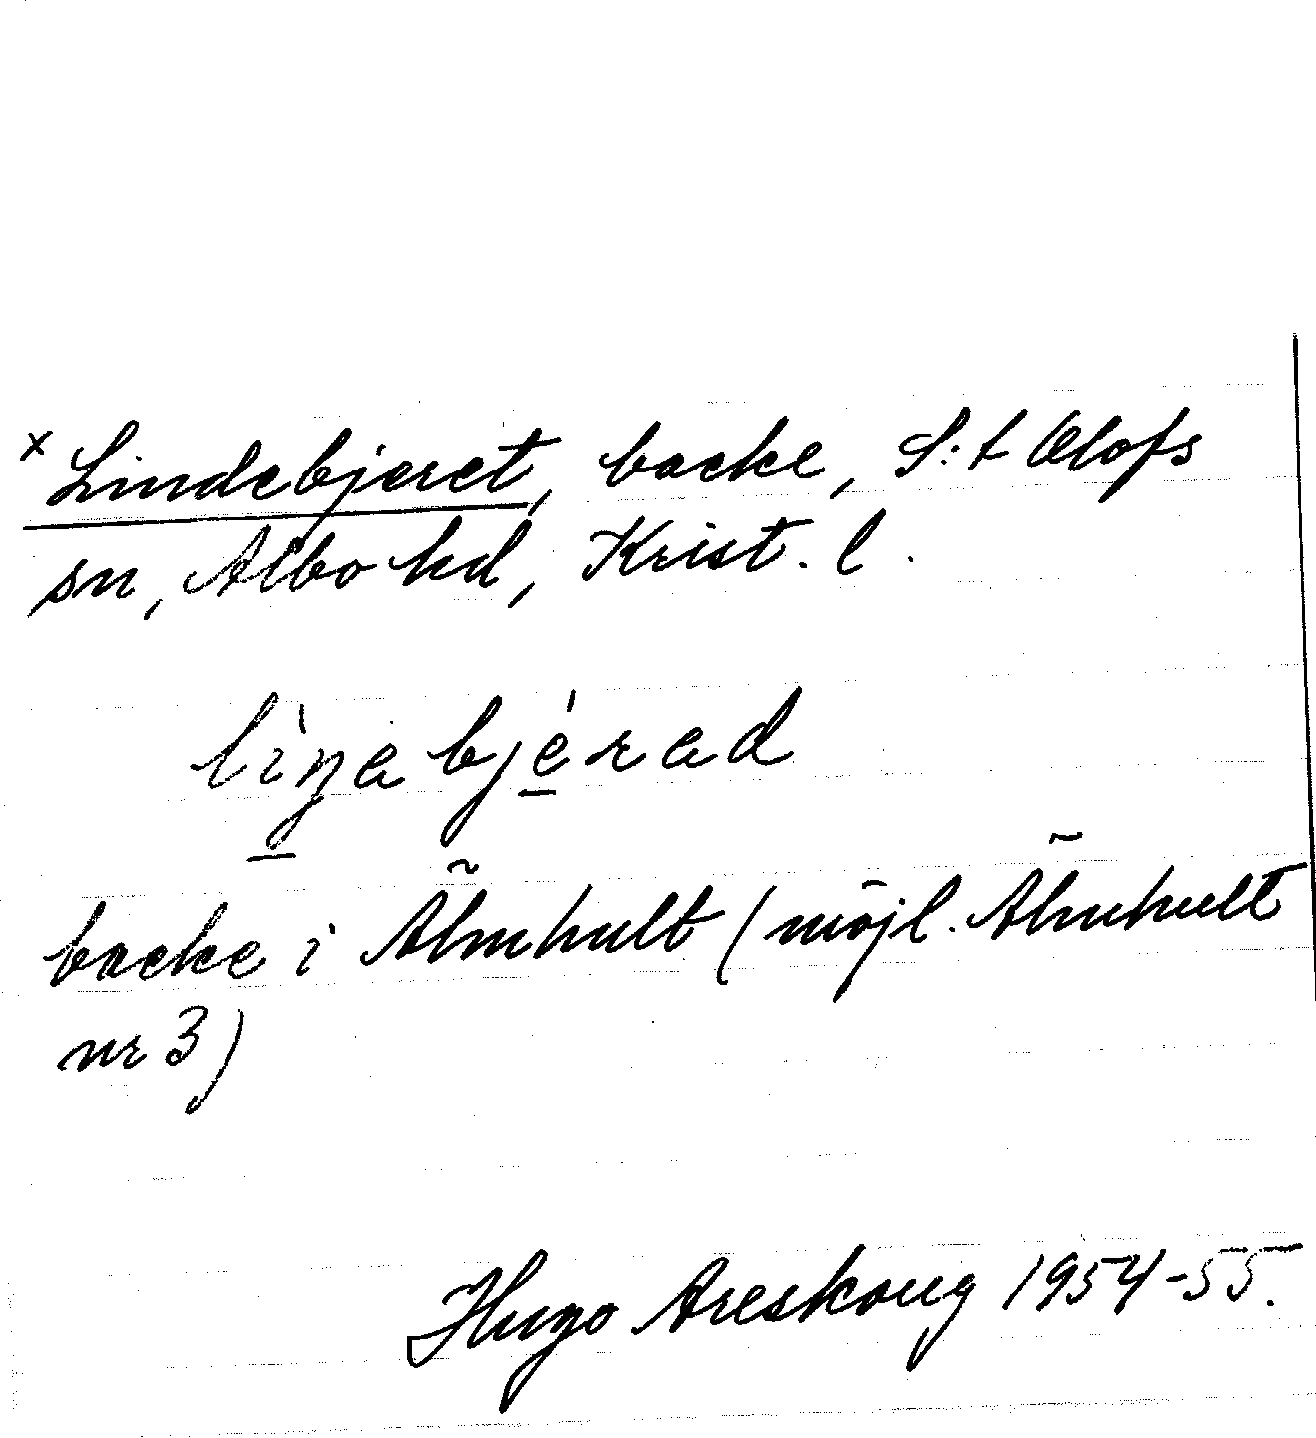 x Lindebjeret, backe, S:t Olofs
sn, Albo hd, Krist. l.
lìŋabjérad
backe i Älmhult (möjl. Älmhult
nr 3)
Hugo Areskoug 1954-55.